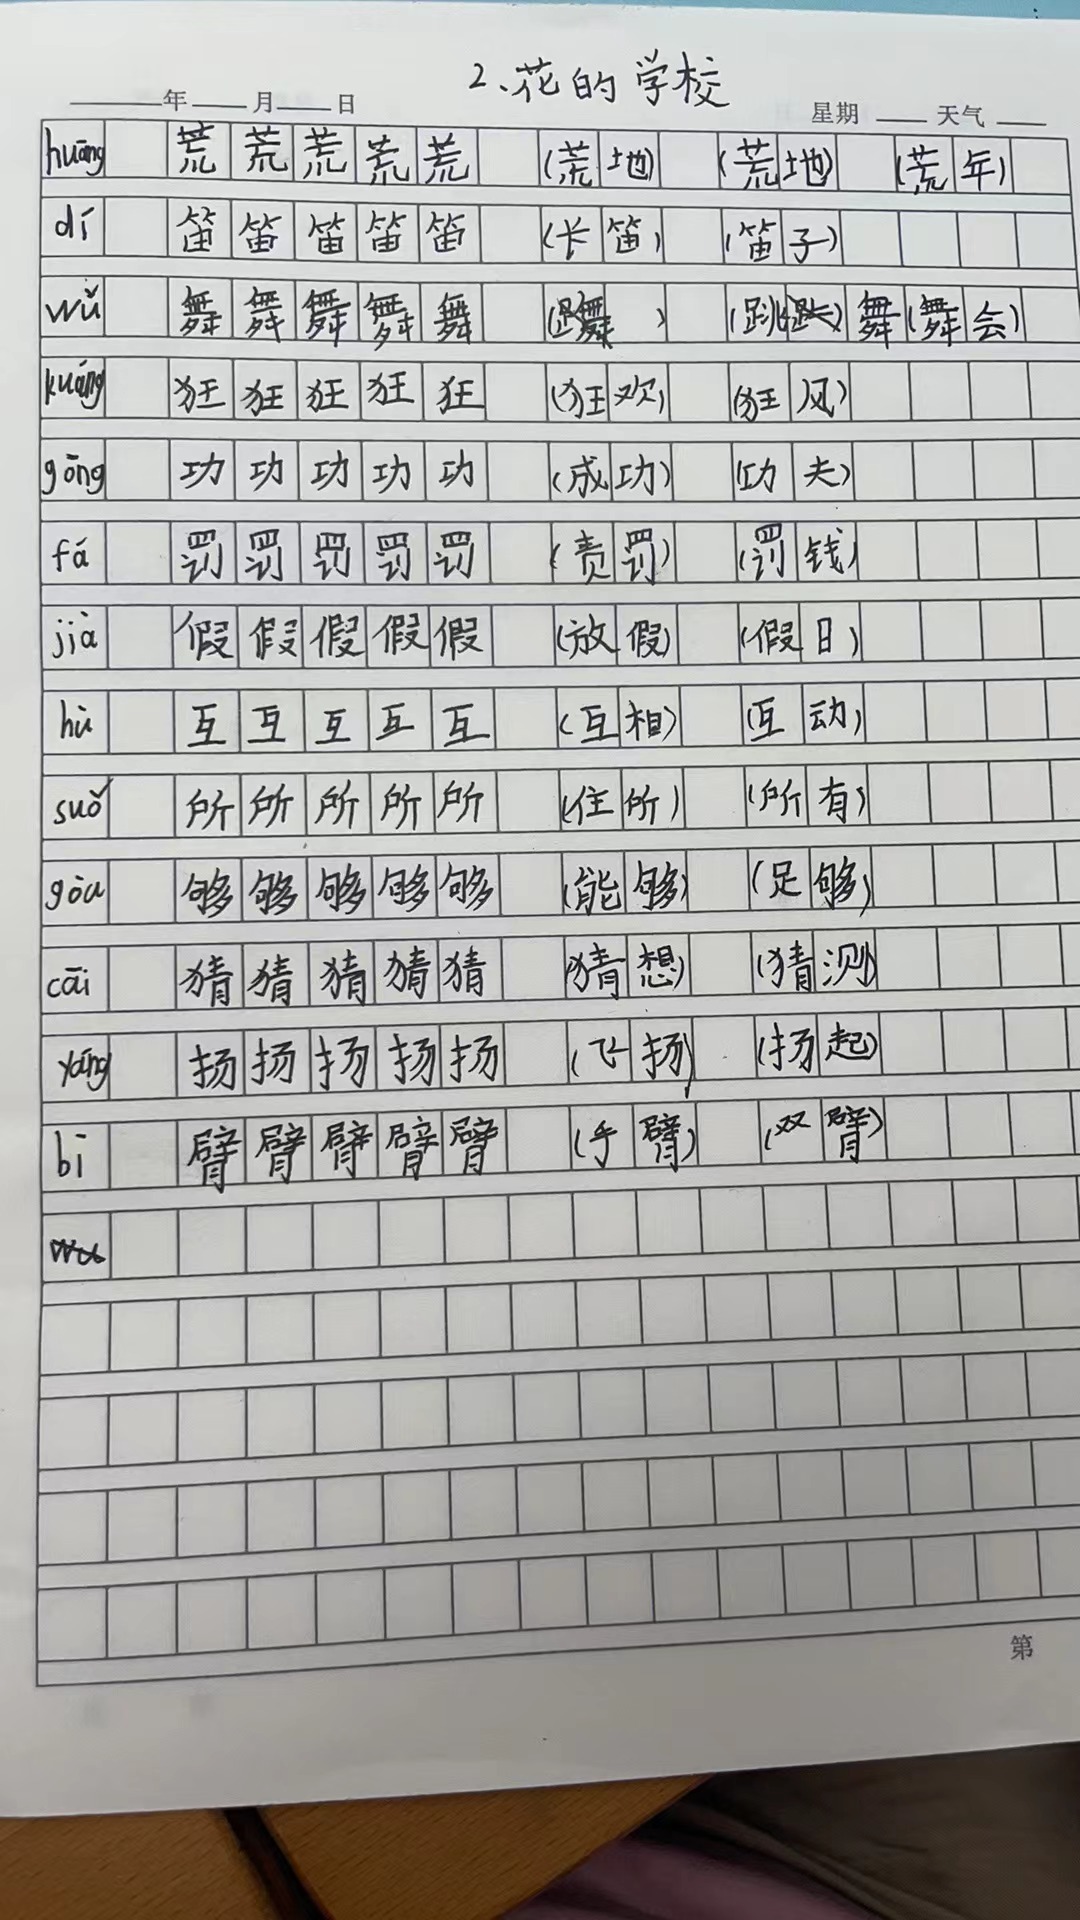 2、花的学校
年 月 日 星期 天气
huāng 荒 荒 荒 荒 荒 (荒地) (荒地) (荒年)
dí 笛 笛 笛 笛 笛 (长笛) (笛子)
wǔ 舞 舞 舞 舞 舞 ( ) (跳 ) 舞 (舞会)
kuáng 狂 狂 狂 狂 狂 (狂欢) (狂风)
gōng 功 功 功 功 功 (成功) (功夫)
fá 罚 罚 罚 罚 罚 (责罚) (罚钱)
jià 假 假 假 假 假 (放假) (假日)
hù 互 互 互 互 互 (互相) (互动)
suǒ 所 所 所 所 所 (住所) (所有)
gòu 够 够 够 够 够 (能够) (足够)
cāi 猜 猜 猜 猜 猜 (猜想) (猜测)
yáng 扬 扬 扬 扬 扬 (飞扬) (扬起)
bì 臂 臂 臂 臂 臂 (手臂) (双臂)
第